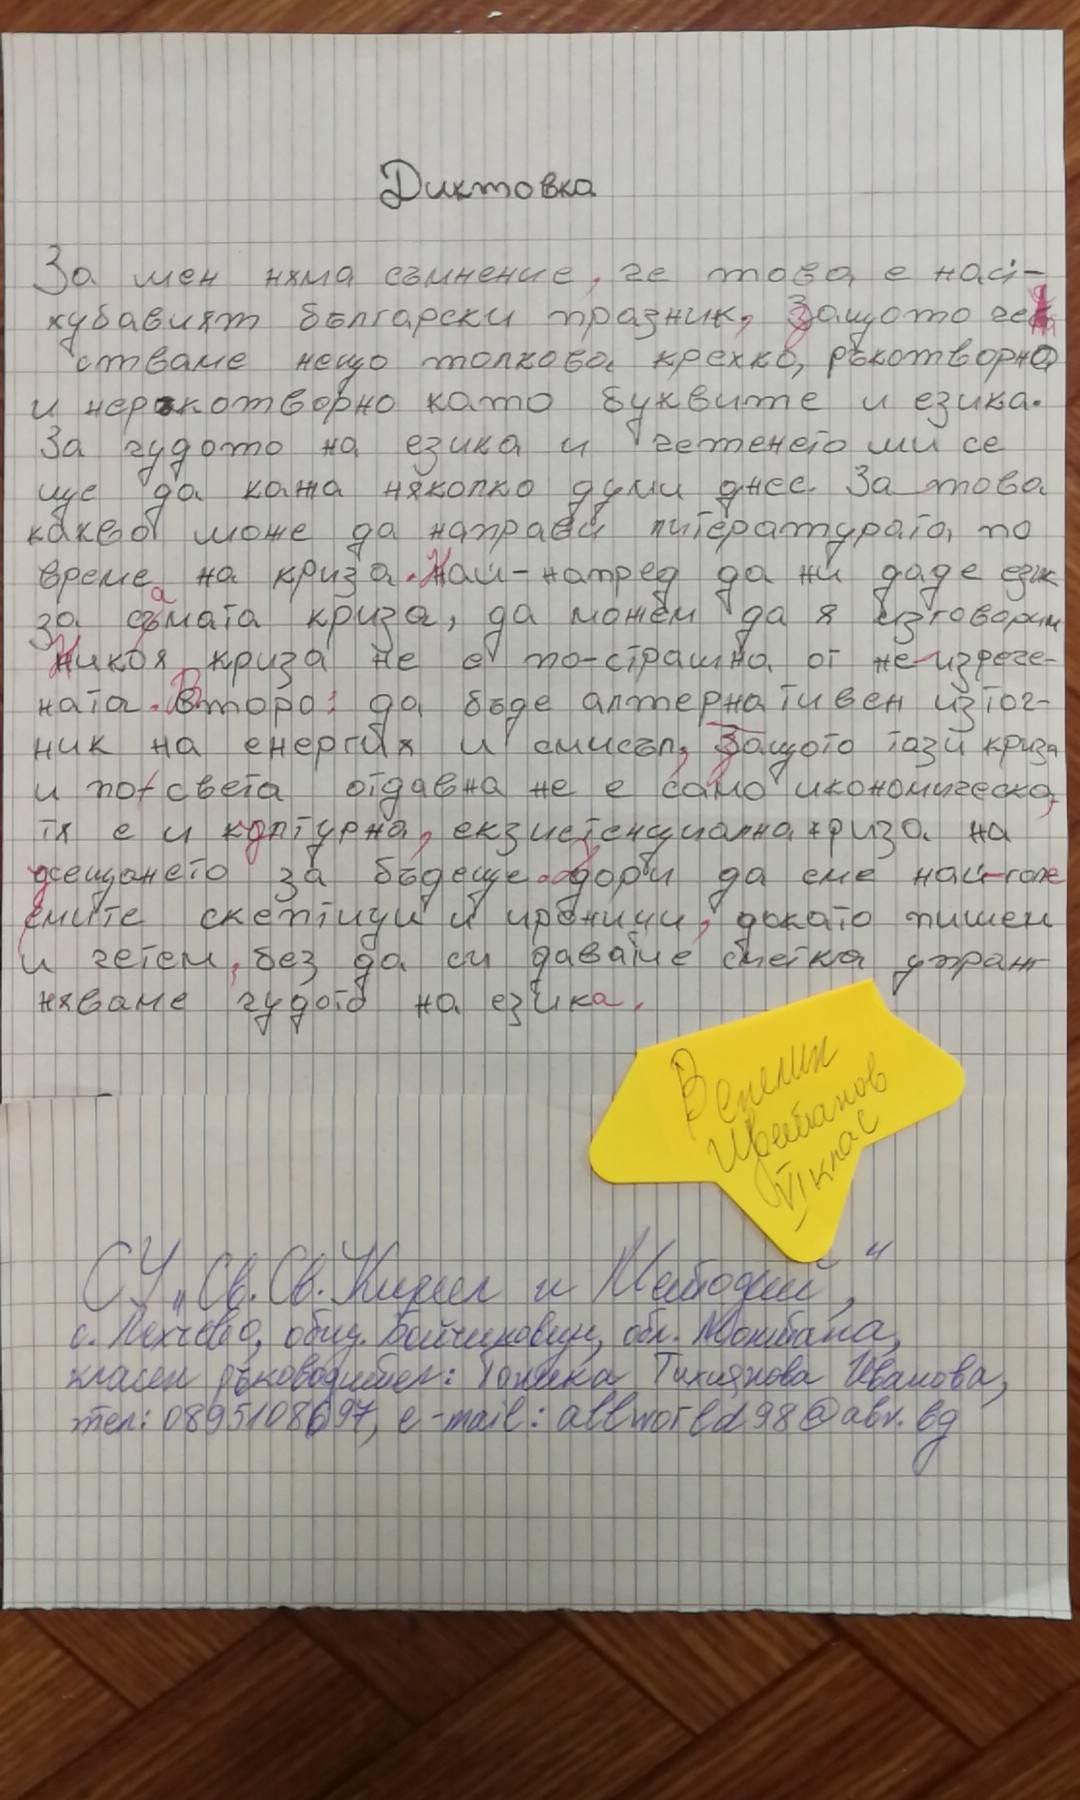 Диктовка
За мен няма съмнение, че това е най-
хубавият български празник, Защото че
стваме нещо толкова крехко, ръкотворно
и неръкотворно като буквите и езика.
За чудото на езика и четенето ми се
ще да кажа няколко думи днес. За това
какво може да направи литературата по
време на криза. Най-напред да ни даде език
за самата криза, да можем да я изговорим
Никоя криза не е по-страшна от не изрече-
ната. Второ: да бъде алтернативен източ-
ник на енергия и смисъл, Защото тази криза
и по света отдавна не е само икономическа,
тя е и културна, екзистенциална криза на
усещането за бъдеще. дори да сме най-голе
емите скептици и ироници, докато пишем
и четем, без да си даваме сметка
няваме чудото на езика.
Венелин
Цветанов
VI клас
СУ „Св. Св. Кирил и Методий“,
с. Лехчево, общ. Бойчиновци, обл. Монтана,
класен ръководител: Иванова,
тел: 0895108697, e-mail: allworld98@abv.bg